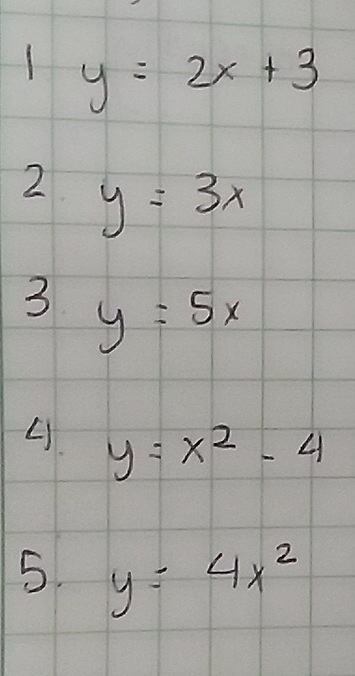 1 y = 2x + 3
2. y = 3x
3 y = 5x
4. y = x² - 4
5. y = 4x²